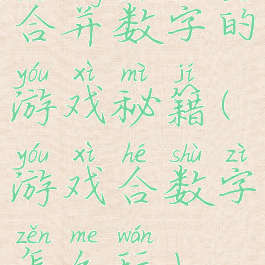 合并数字的
yóu xì mì jí
游戏秘籍(
yóu xì hé shù zì
游戏合数字
zěn me wán
怎么玩)